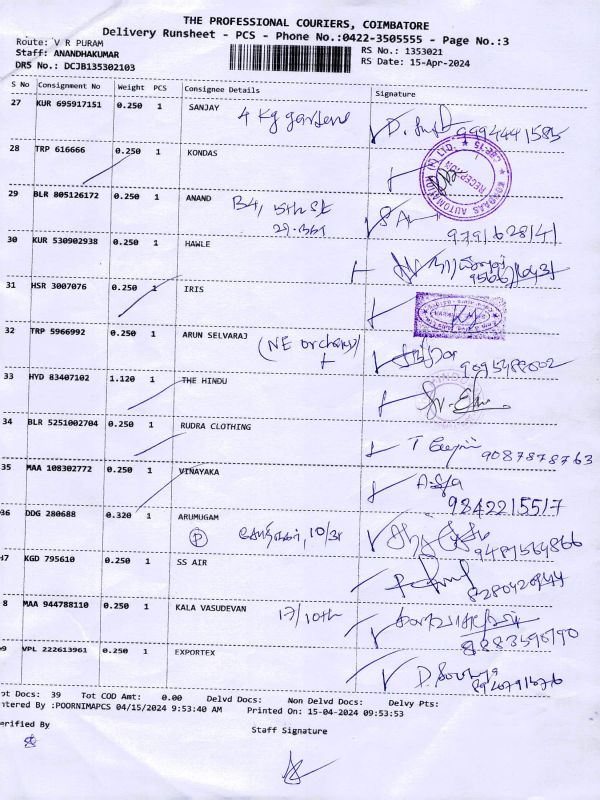 THE PROFESSIONAL COURIERS, COIMBATORE
Delivery Runsheet - PCS - Phone No.:0422-3505555 - Page No.:3
Route: V R PURAM
RS No.: 1353021
Staff: ANANDHAKUMAR
RS Date: 15-Apr-2024
DRS No.: DCJB135302103
S No Consignment No Weight PCS Consignee Details Signature
27 KUR 695917151 0.250 1 SANJAY 4 Kg gardens 9994441585
28 TRP 616666 0.250 1 KONDAS
29 BLR 805126172 0.250 1 ANAND B4, 5th St
9791628141
30 KUR 530902938 0.250 1 HAWLE
31 HSR 3007076 0.250 1 IRIS
32 TRP 5966992 0.250 1 ARUN SELVARAJ (NE orchards)
33 HYD 83407102 1.120 1 THE HINDU
34 BLR 5251002704 0.250 1 RUDRA CLOTHING 9087878763
35 MAA 108302772 0.250 1 VINAYAKA
9842215517
36 DDG 280688 0.320 1 ARUMUGAM
P 10/31 9487564866
37 KGD 795610 0.250 1 SS AIR
8 MAA 944788110 0.250 1 KALA VASUDEVAN 17/10th
8883596190
9 VPL 222613961 0.250 1 EXPORTEX
ot Docs: 39 Tot COD Amt: 0.00 Delvd Docs: Non Delvd Docs: Delvy Pts:
ntered By :POORNIMAPCS 04/15/2024 9:53:40 AM Printed On: 15-04-2024 09:53:53
erified By
Staff Signature